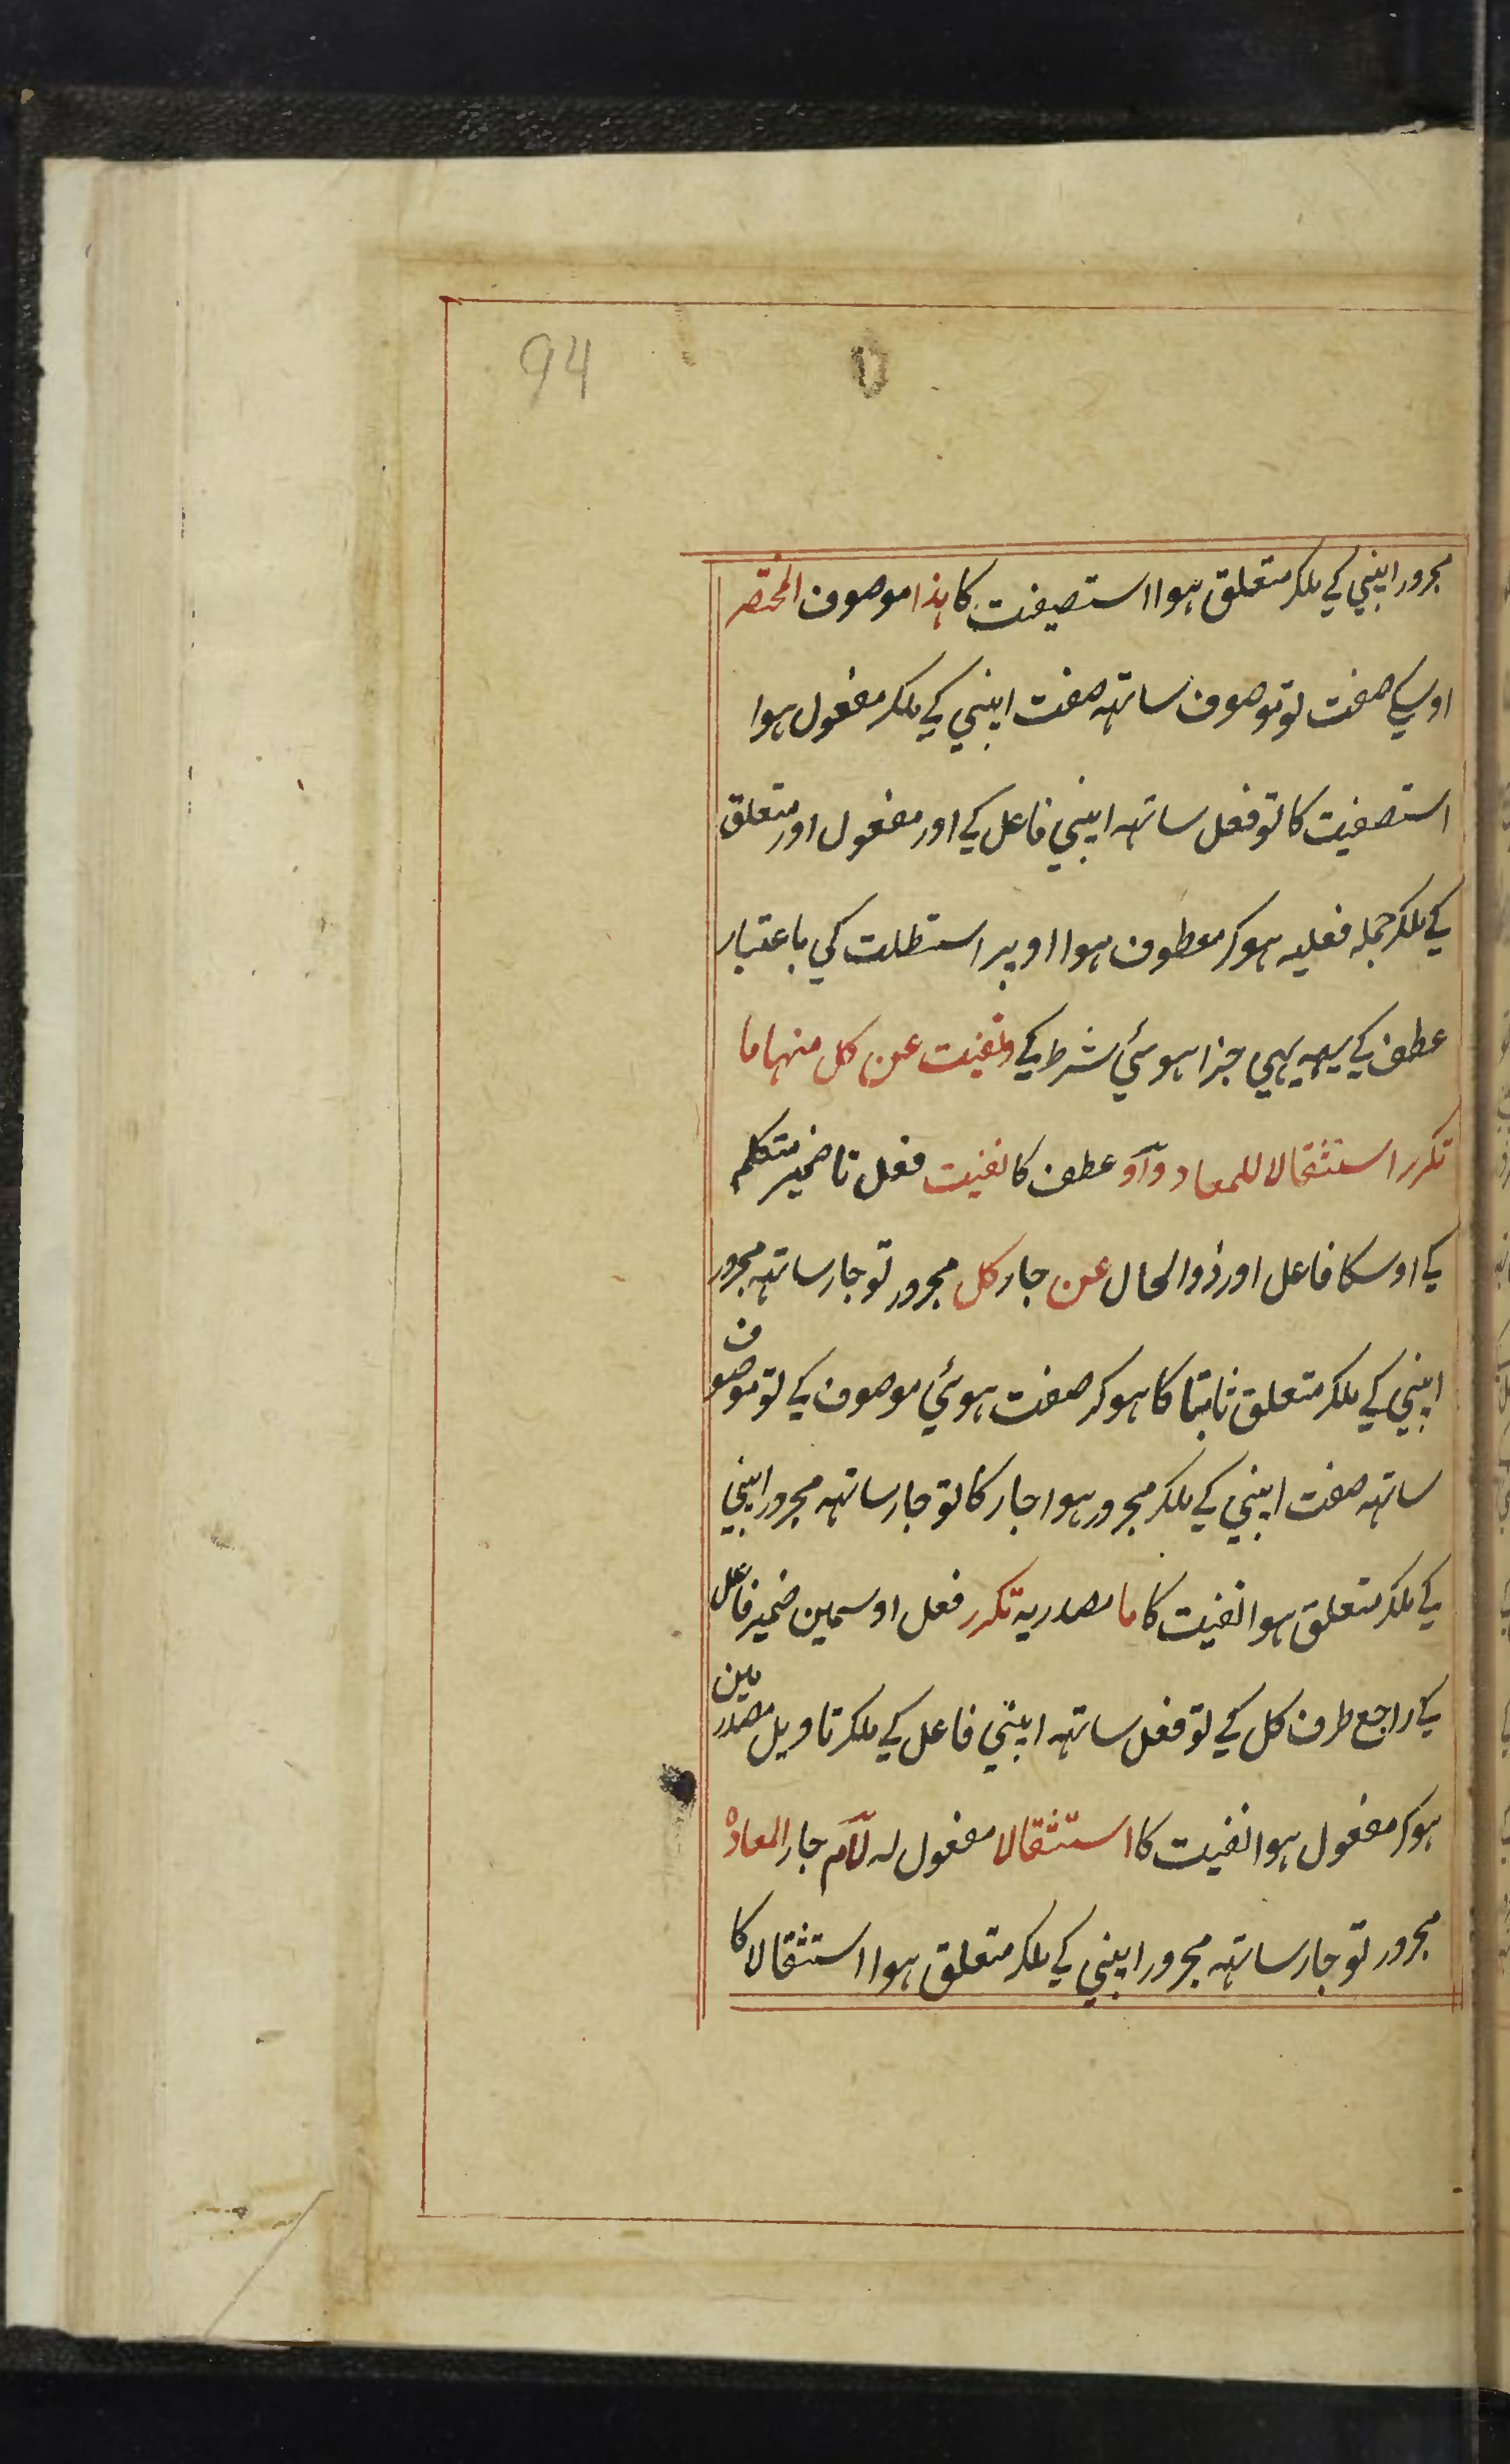 94
مجرور اپنی کے ملکر متعلق ہوا استصفیت کا ہذا موصوف المختصر
اوسکے صفت تو موصوف ساتہہ صفت اپنی کے ملکر مفعول ہوا
استصفیت کا تو فعل ساتہہ اپنی فاعل کے اور مفعول اور متعلق
کے ملکر جملہ فعلیہ ہوکر معطوف ہوا اوپر استطلت کی باعتبار
عطف کے یہہ بہی جزا ہوئی شرط کے ونفیت عن کل منہا ما
تکرر استثقالا للمعاد واو عطف کا نفیت فعل تا ضمیر متکلم
کے اوسکا فاعل اور ذوالحال عن جار کل مجرور تو جار ساتہہ مجرور
اپنی کے ملکر متعلق ثابتا کا ہوکر صفت ہوئی موصوف کے تو موصوف
ساتہہ صفت اپنی کے ملکر مجرور ہوا جار کا تو جار ساتہہ مجرور اپنی
کے ملکر متعلق ہوا نفیت کا ما مصدریہ تکرر فعل اوسمین ضمیر فاعل
کے راجع طرف کل کے تو فعل ساتہہ اپنی فاعل کے ملکر تاویل مصدر مین
ہوکر مفعول ہوا نفیت کا استثقالا مفعول لہ لام جار المعاد
مجرور تو جار ساتہہ مجرور اپنی کے ملکر متعلق ہوا استثقالا کا